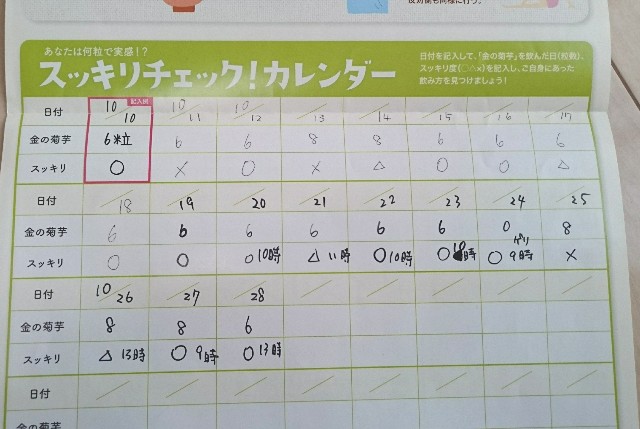 反対側も同様に行う。
あなたは何粒で実感!?
スッキリチェック!カレンダー
日付を記入して、「金の菊芋」を飲んだ日(粒数)、
スッキリ度(○△×)を記入し、ご自身にあった
飲み方を見つけましょう!
記入例
日付 10/10 10/11 10/12 /13 /14 /15 /16 /17
金の菊芋 6粒 6 6 8 8 6 6 6
スッキリ ○ × ○ × △ ○ ○ △
日付 /18 /19 /20 /21 /22 /23 /24 /25
金の菊芋 6 6 6 6 6 6 0 8
スッキリ ○ ○ ○10時 △11時 ○10時 ○10時 ○ゲリ9時 ×
日付 10/26 /27 /28 / / / / /
金の菊芋 8 8 6
スッキリ △13時 ○9時 ○13時
日付 / / / / / / / /
金の菊芋